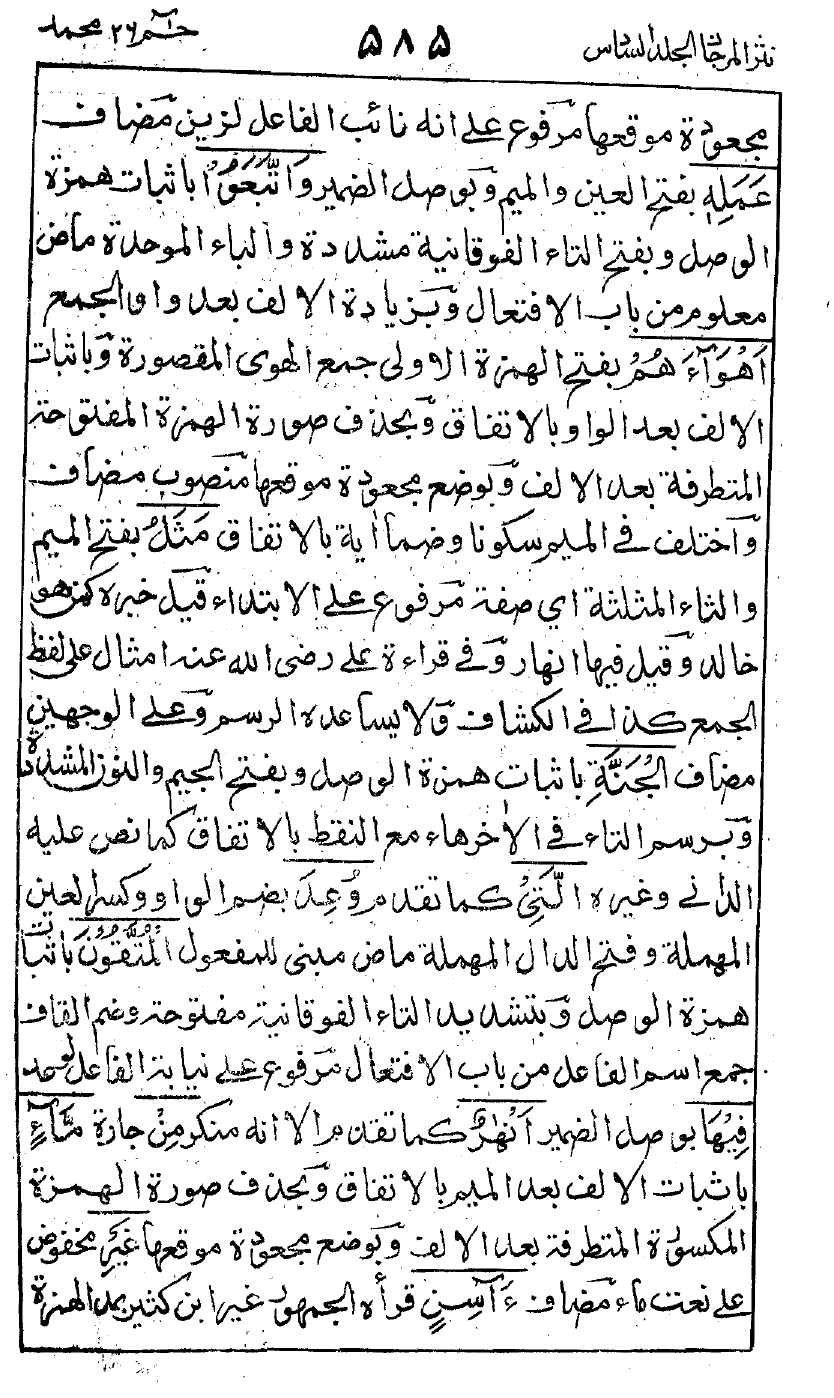 نثر المرجان المجلد السادس ۵۸۵ حٰـم ۲۶ محمد
مجعودة موقعها مرفوع على انه نائب الفاعل لزين مضاف
عَمَلِهٖ بفتح العين والميم وبوصل الضمير وَاتَّبَعُوْا باثبات همزة
الوصل وبفتح التاء الفوقانية مشددة والباء الموحدة ماض
معلوم من باب الافتعال وبزيادة الالف بعد واو الجمع
اَهْوَآءَهُمْ بفتح الهمزة الاولى جمع الهوى المقصورة وباثبات
الالف بعد الواو بالاتفاق وبحذف صورة الهمزة المفتوحة
المتطرفة بعد الالف وبوضع مجعودة موقعها منصوب مضاف
واختلف في الميم سكونا وضما اية بالاتفاق مَثَلُ بفتح الميم
والثاء المثلثة اي صفة مرفوع على الابتداء قيل خبره كمن هو
خالد وقيل فيها انهار وفي قراءة على رضى الله عنه امثال على لفظ
الجمع كذا في الكشاف ولا يساعده الرسم وعلى الوجهين
مضاف الْجَنَّةِ باثبات همزة الوصل وبفتح الجيم والنون المشددة
وبرسم التاء في الاخرهاء مع النقط بالاتفاق كما نص عليه
الداني وغيره الَّتِيْ كما تقدم وُعِدَ بضم الواو وكسر العين
المهملة وفتح الدال المهملة ماض مبنى للمفعول الْمُتَّقُوْنَ باثبات
همزة الوصل وبتشديد التاء الفوقانية مفتوحة وضم القاف
جمع اسم الفاعل من باب الافتعال مرفوع على نيابة الفاعل لوعد
فِيْهَا بوصل الضمير اَنْهٰرٌ كما تقدم الا انه منكر مِنْ جارة مَّآءٍ
باثبات الالف بعد الميم بالاتفاق وبحذف صورة الهمزة
المكسورة المتطرفة بعد الالف وبوضع مجعودة موقعها غَيْرِ مخفوض
على نعت ماء مضاف ءَاسِنٍ قرأه الجمهور غير ابن كثير بمد الهمزة